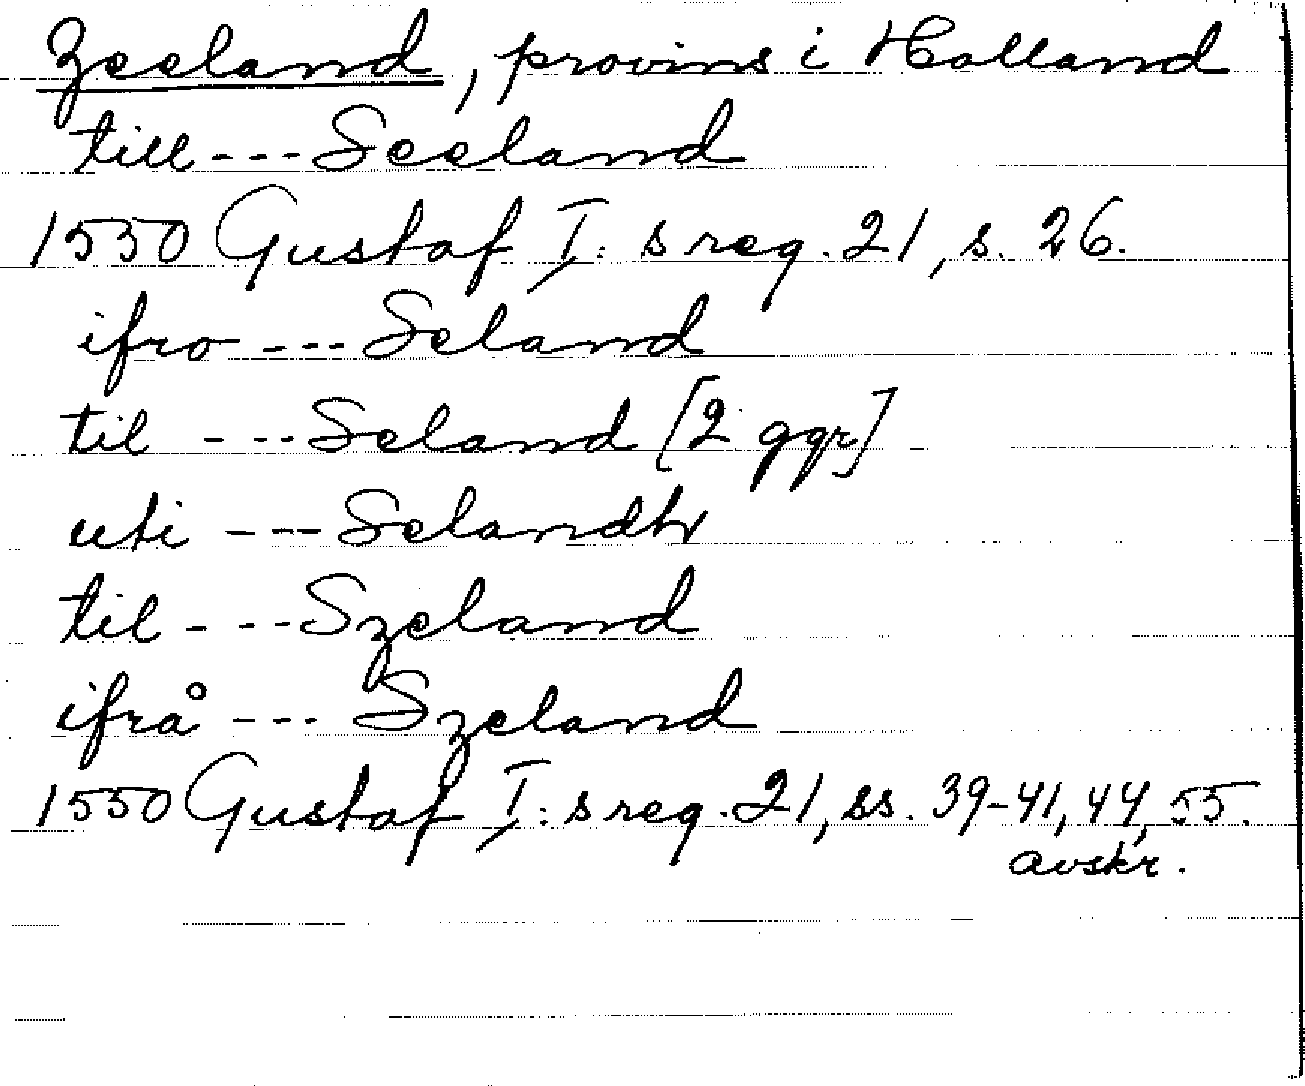 Zeeland, provins i Holland
till --- Seeland
1550 Gustaf I:s reg. 21, s. 26.
ifro --- Seland
til --- Seland [2 ggr]
uti --- Selandh
til --- Szeland
ifrå --- Szeland
1550 Gustaf I:s reg. 21, ss. 39-41, 44, 55.
avskr.